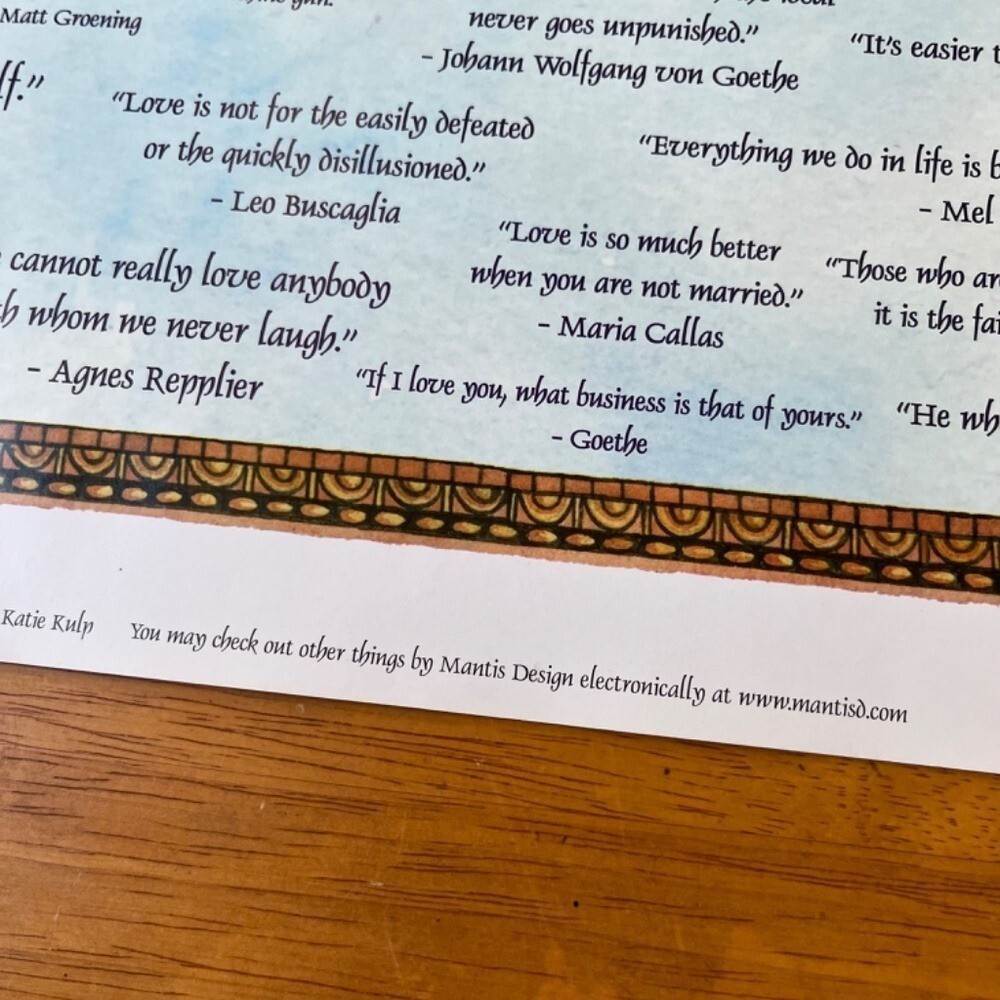 Matt Groening
never goes unpunished.”
– Johann Wolfgang von Goethe
“It’s easier
lf.”
“Love is not for the easily defeated
or the quickly disillusioned.”
– Leo Buscaglia
“Everything we do in life is
– Mel
cannot really love anybody
whom we never laugh.”
– Agnes Repplier
“Love is so much better
when you are not married.”
– Maria Callas
“Those who
it is the
“If I love you, what business is that of yours.”
– Goethe
“He
Katie Kulp You may check out other things by Mantis Design electronically at www.mantisd.com